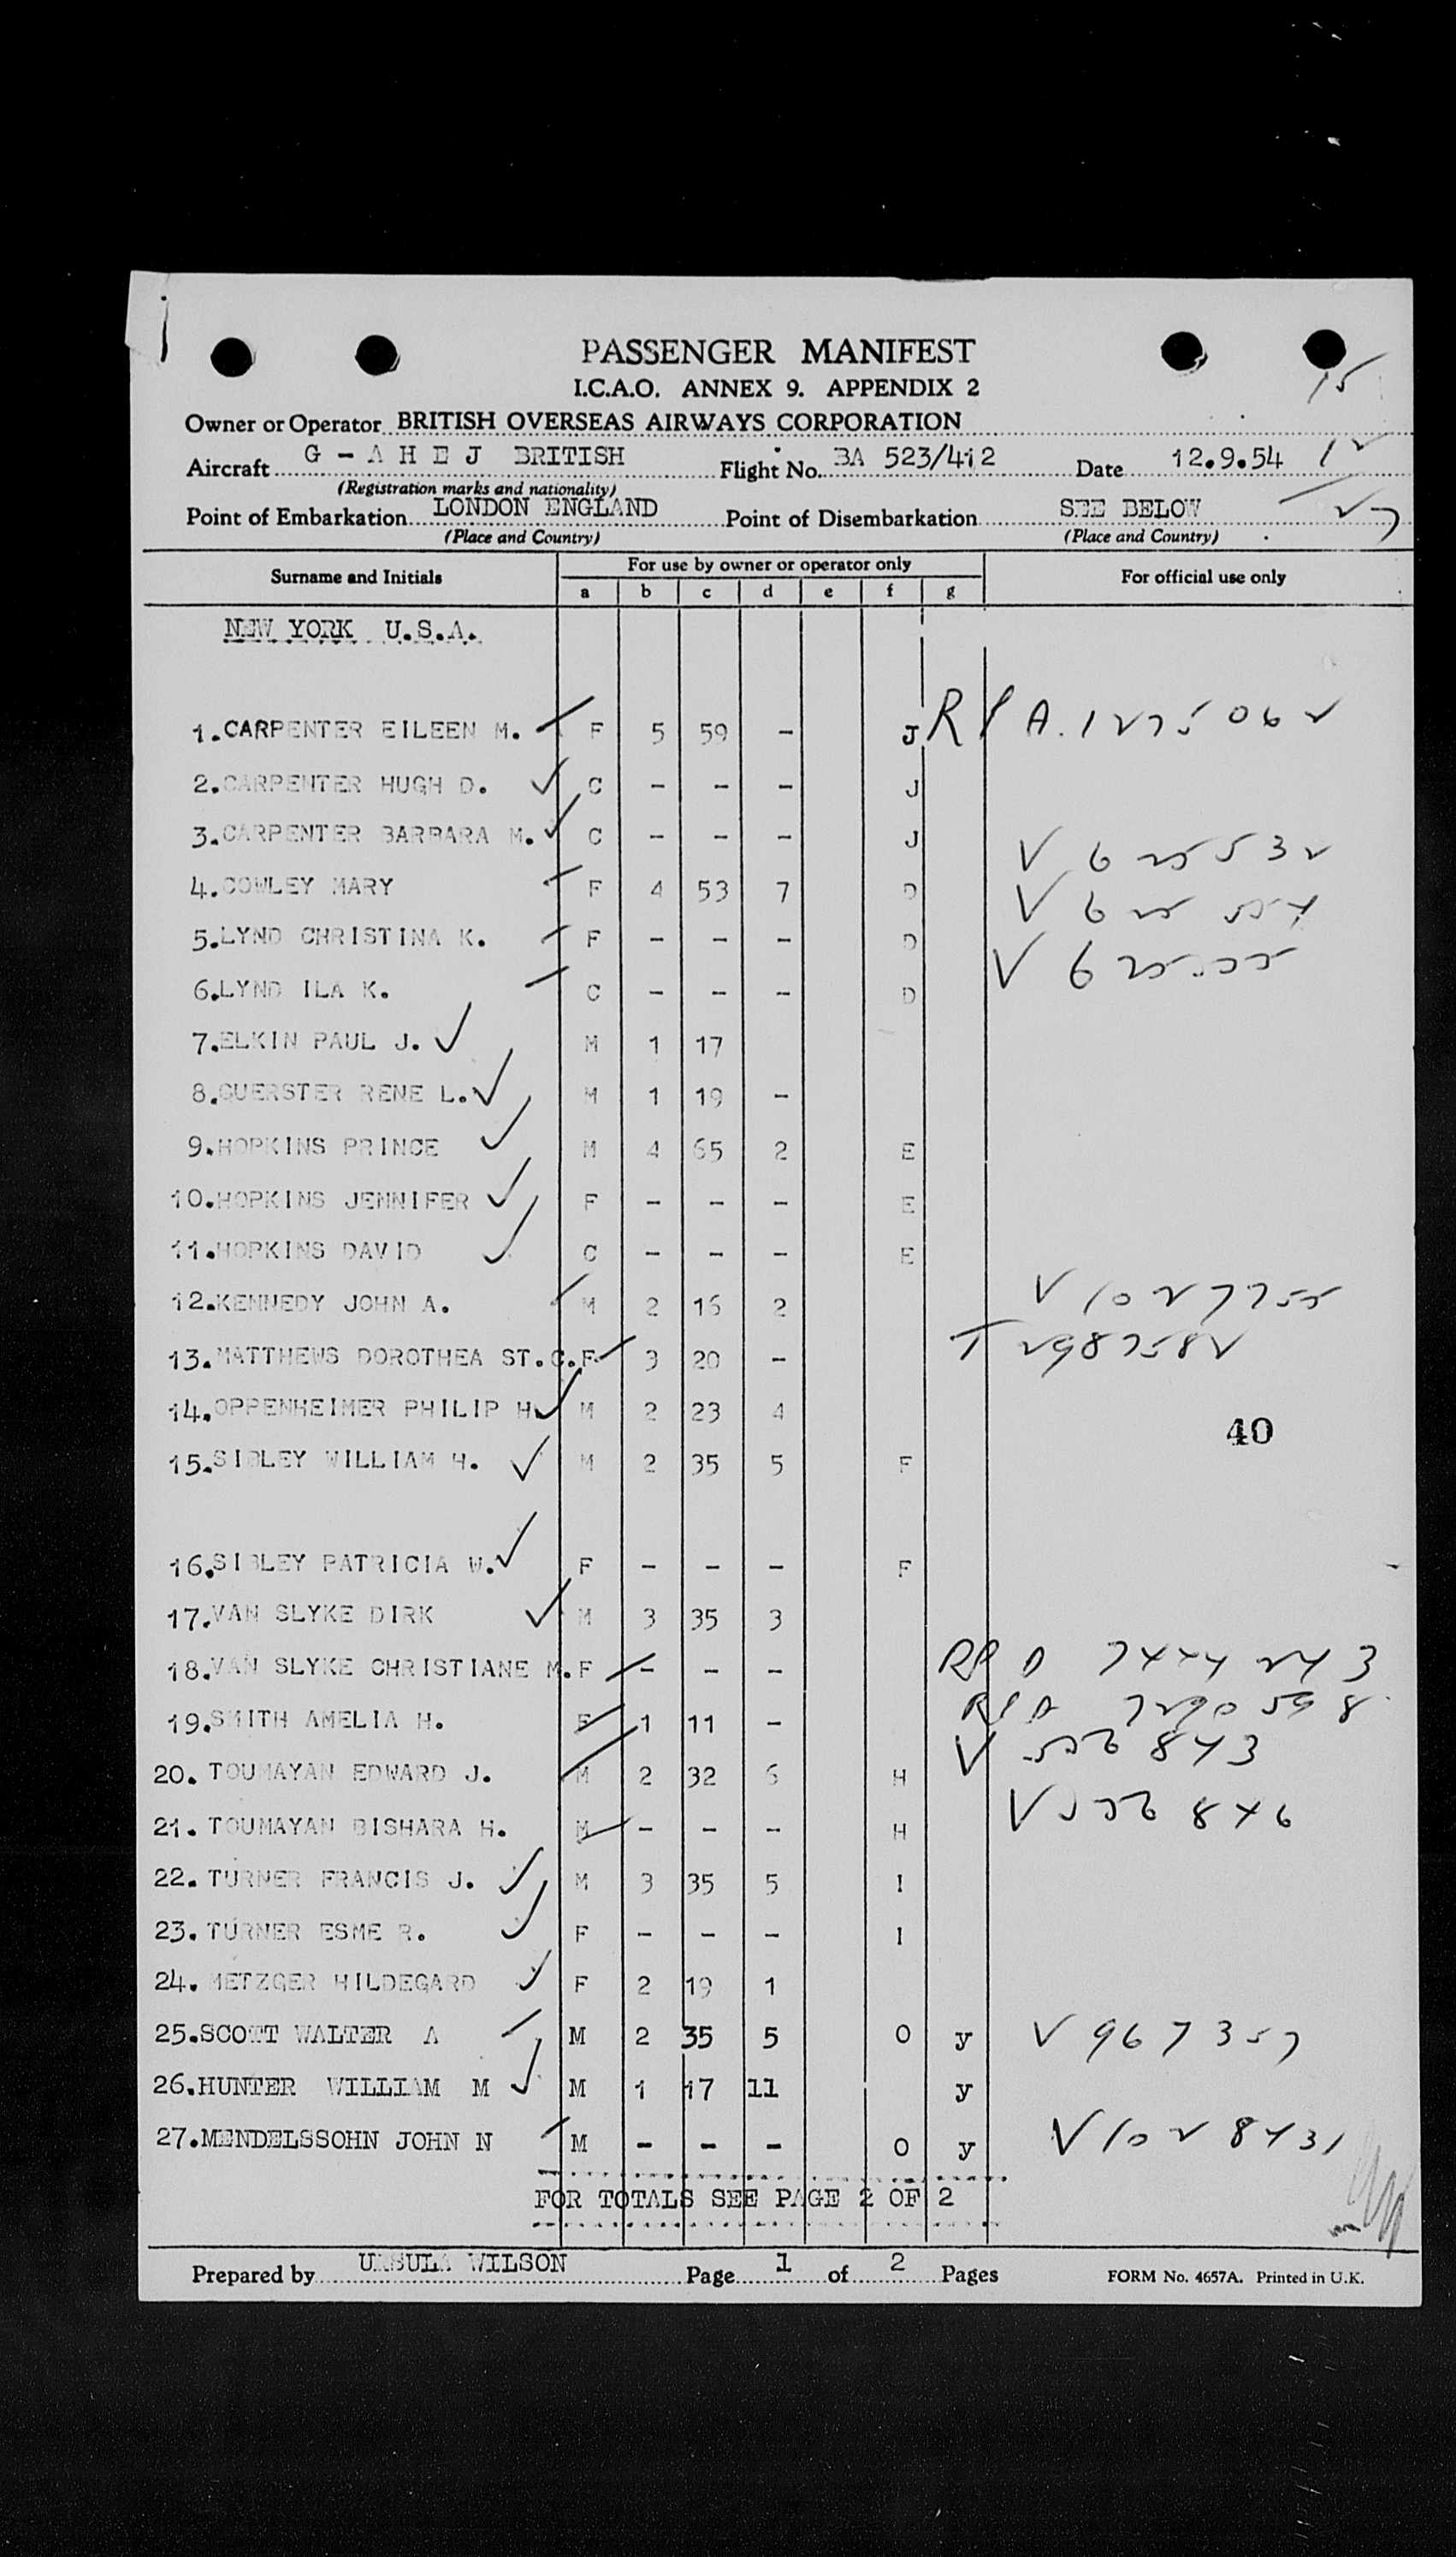 PASSENGER MANIFEST
I.C.A.O. ANNEX 9. APPENDIX 2
15
Owner or Operator BRITISH OVERSEAS AIRWAYS CORPORATION
Aircraft G - A H E J BRITISH Flight No. BA 523/412 Date 12.9.54 12
(Registration marks and nationality)
Point of Embarkation LONDON ENGLAND Point of Disembarkation SEE BELOW 27
(Place and Country) (Place and Country)
Surname and Initials For use by owner or operator only For official use only
a b c d e f g
NEW YORK U.S.A.
1. CARPENTER EILEEN M. F 5 59 - J RPA.1275062
2. CARPENTER HUGH D. C - - - J
3. CARPENTER BARBARA M. C - - - J
V 625532
4. COWLEY MARY F 4 53 7 D V 625554
5. LYND CHRISTINA K. F - - - D V 625555
6. LYND ILA K. C - - - D
7. ELKIN PAUL J. M 1 17
8. GUERSTER RENE L. M 1 19 -
9. HOPKINS PRINCE M 4 65 2 E
10. HOPKINS JENNIFER F - - - E
11. HOPKINS DAVID C - - - E
12. KENNEDY JOHN A. M 2 16 2 V 1027755
13. MATTHEWS DOROTHEA ST.C. F 3 20 - T 2987582
14. OPPENHEIMER PHILIP H. M 2 23 4 40
15. SIBLEY WILLIAM H. M 2 35 5 F
16. SIBLEY PATRICIA W. F - - - F
17. VAN SLYKE DIRK M 3 35 3
18. VAN SLYKE CHRISTIANE M. F - - - 7444243
19. SMITH AMELIA H. F 1 11 - RPA 7290598
20. TOUMAYAN EDWARD J. M 2 32 6 H V 556843
21. TOUMAYAN BISHARA H. M - - - H V 556846
22. TURNER FRANCIS J. M 3 35 5 I
23. TURNER ESME R. F - - - I
24. METZGER HILDEGARD F 2 19 1
25. SCOTT WALTER A M 2 35 5 O y V 967357
26. HUNTER WILLIAM M M 1 17 11 y
27. MENDELSSOHN JOHN N M - - - O y V 1028431
FOR TOTALS SEE PAGE 2 OF 2
Prepared by URSULA WILSON Page 1 of 2 Pages FORM No. 4657A. Printed in U.K.